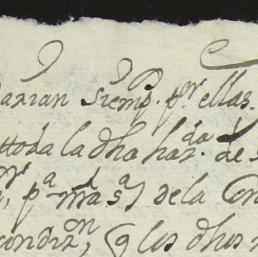 darian siemp. p.r ellas.
toda la dha haz.da de
p.a mas de la Con
condiz.on, q los dhos